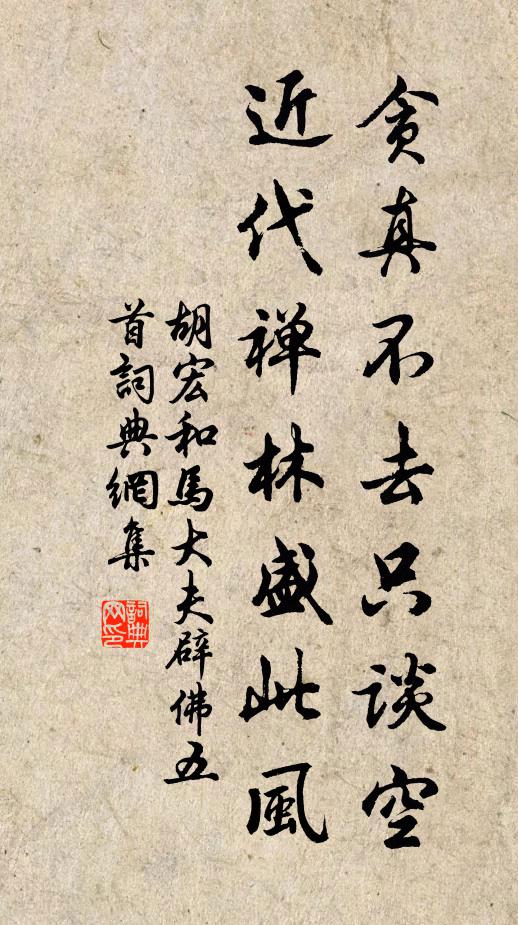 貪真不去只談空
近代禅林盛此風
胡宏和馬大夫辟佛五
首詞典網集
詞典網印